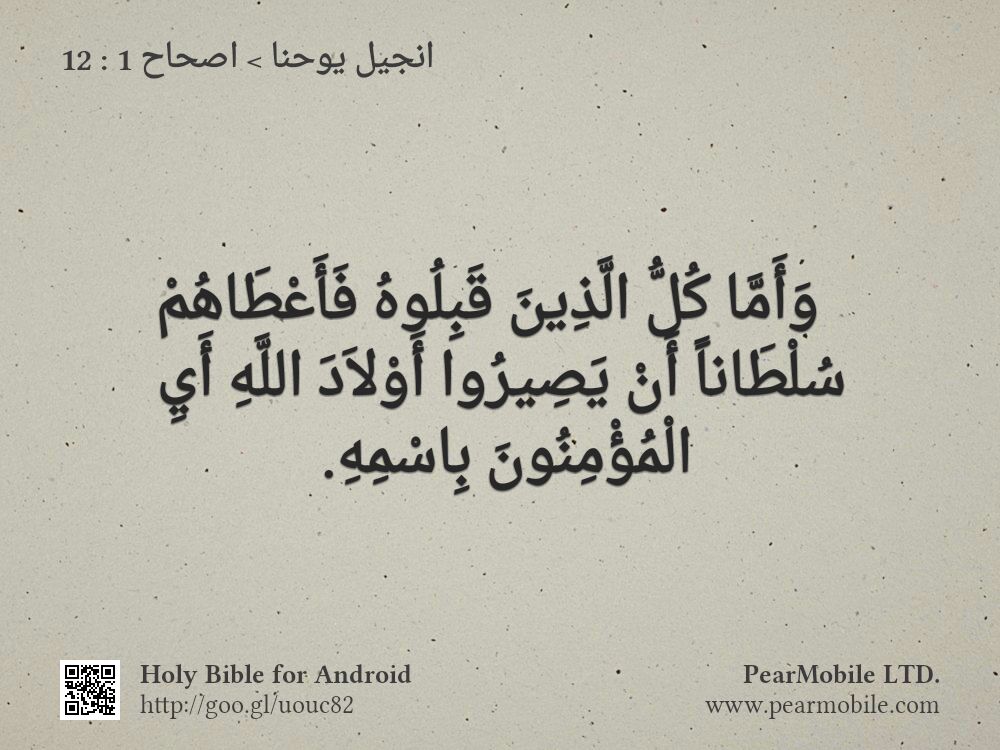 انجيل يوحنا > اصحاح 1 : 12
وَأَمَّا كُلُّ الَّذِينَ قَبِلُوهُ فَأَعْطَاهُمْ
سُلْطَاناً أَنْ يَصِيرُوا أَوْلاَدَ اللَّهِ أَيِ
الْمُؤْمِنُونَ بِاسْمِهِ.
Holy Bible for Android
http://goo.gl/uouc82
PearMobile LTD.
www.pearmobile.com